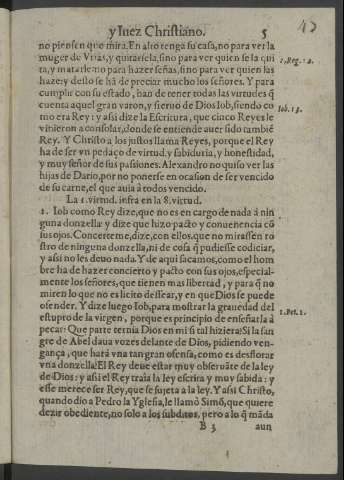 y Iuez Christiano. 5
no piensen que mira. En alto tenga su casa, no para ver la
muger de Vrias, y quitarsela, sino para ver quien se la qui
ta, y matarle: no para hazer señas, sino para ver quien las
haze: y desto se ha de preciar mucho los señores. Y para
cumplir con su estado, han de tener todas las virtudes q̃
cuenta aquel gran varon, y sieruo de Dios Iob, siendo co
mo era Rey: y assi dize la Escritura, que cinco Reyes le
vinieron a consolar, donde se entiende auer sido tambiē
Rey. Y Christo a los justos llama Reyes, porque el Rey
ha de ser vn pedaço de virtud, y sabiduria, y honestidad,
y muy señor de sus pasiones. Alexandro no quiso ver las
hijas de Dario, por no ponerse en ocasion de ser vencido
de su carne, el que auia à todos vencido.
La 1. virtud. infra en la 8. virtud.
1. Iob como Rey dize, que no es en cargo de nada à nin
guna donzella: y dize que hizo pacto y conuenencia cō
sus ojos. Concerteme, dize, con ellos, que no mirassen ro
stro de ninguna donzella, ni de cosa q̃ pudiesse codiciar,
y assi no les deuo nada. Y de aqui sacamos, como el hom
bre ha de hazer concierto y pacto con sus ojos, especial-
mente los señores, que tienen mas libertad, y para q̃ no
miren lo que no es licito dessear, y en que Dios se puede
ofender. Y dize luego Iob, para mostrar la grauedad del
estupro de la virgen, porque es principio de enseñarla à
pecar: Que parte ternia Dios en mi si tal hiziera? Si la san
gre de Abel daua vozes delante de Dios, pidiendo ven-
gança, que hará vna tan gran ofensa, como es desflorar
vna donzella? El Rey deue estar muy obseruāte de la ley
de Dios: y assi el Rey traìa la ley escrita y muy sabida: y
esse merece ser Rey, que se sujeta a la ley. Y assi Christo,
quando dio a Pedro la Yglesia, le llamó Simō, que quiere
dezir obediente, no solo a los subditos, pero a lo q̃ māda
B 3 aun
Iob. 1 3.
1. Pet. 2.